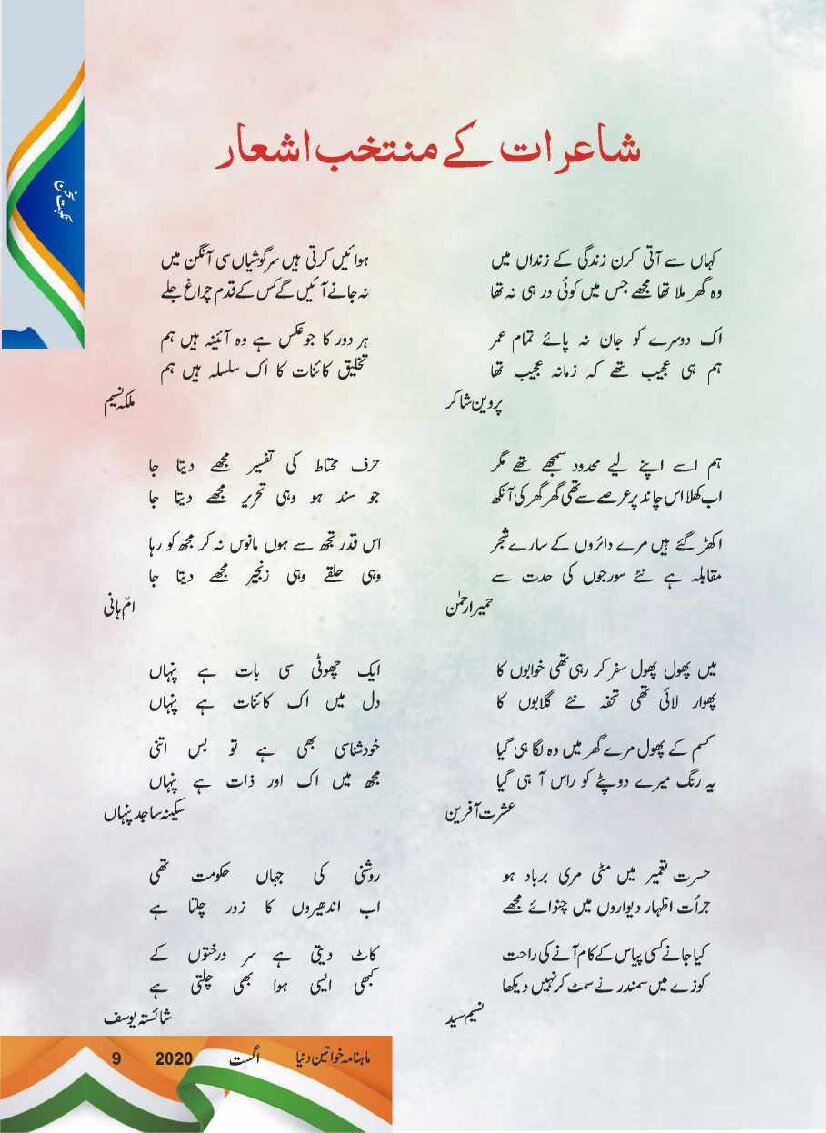 شاعرات کے منتخب اشعار
کہاں سے آتی کرن زندگی کے زنداں میں
وہ گھر ملا تھا مجھے جس میں کوئی در ہی نہ تھا
اک دوسرے کو جان نہ پائے تمام عمر
ہم ہی عجیب تھے کہ زمانہ عجیب تھا
پروین شاکر
ہم اسے اپنے لیے محدود سمجھے تھے مگر
اب کھلا اس چاند پر عرصے سے تھی گھر گھر کی آنکھ
اکھڑ گئے ہیں مرے دائروں کے سارے شجر
مقابلہ ہے نئے سورجوں کی حدت سے
حمیرا رحمٰن
میں پھول پھول سفر کر رہی تھی خوابوں کا
پھوار لائی تھی تحفہ نئے گلابوں کا
کسم کے پھول مرے گھر میں وہ لگا ہی گیا
یہ رنگ میرے دوپٹے کو راس آ ہی گیا
عشرت آفرین
حسرت تعمیر میں مٹی مری برباد ہو
جرأت اظہار دیواروں میں چنوائے مجھے
کیا جانے کسی پیاس کے کام آنے کی راحت
کوزے میں سمندر نے سمٹ کر نہیں دیکھا
نسیم سید
ہوائیں کرتی ہیں سرگوشیاں سی آنگن میں
نہ جانے آئیں گے کس کے قدم چراغ جلے
ہر دور کا جو عکس ہے وہ آئینہ ہیں ہم
تخلیق کائنات کا اک سلسلہ ہیں ہم
ملکہ نسیم
حرف محتاط کی تفسیر مجھے دیتا جا
جو سند ہو وہی تحریر مجھے دیتا جا
اس قدر تجھ سے ہوں مانوس نہ کر مجھ کو رہا
وہی حلقے وہی زنجیر مجھے دیتا جا
امّ ہانی
ایک چھوٹی سی بات ہے پنہاں
دل میں اک کائنات ہے پنہاں
خودشناسی بھی ہے تو بس اتنی
مجھ میں اک اور ذات ہے پنہاں
سکینہ ساجد پنہاں
روشنی کی جہاں حکومت تھی
اب اندھیروں کا زور چلتا ہے
کاٹ دیتی ہے سر درختوں کے
کبھی ایسی ہوا بھی چلتی ہے
شائستہ یوسف
ماہنامہ خواتین دنیا اگست 2020 9